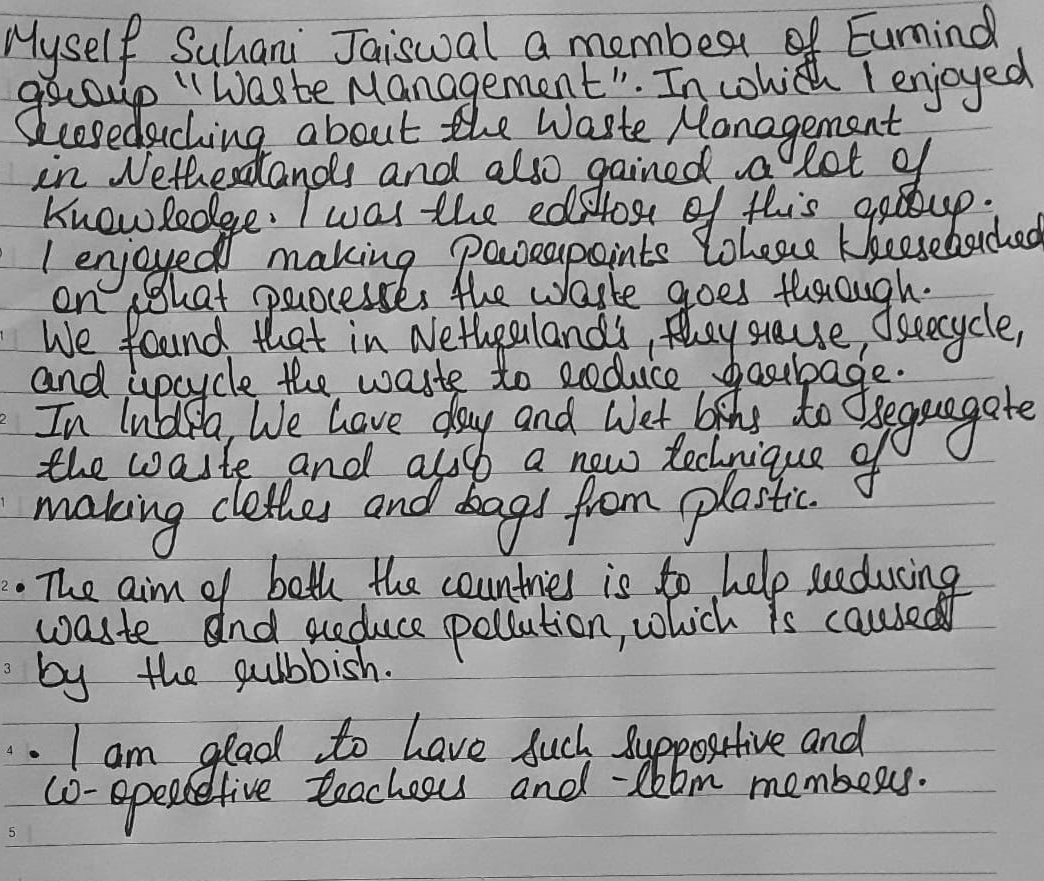 Myself Suhani Jaiswal a member of Eumind
group "Waste Management". In which I enjoyed
researching about the Waste Management
in Netherlands and also gained a lot of
Knowledge. I was the editor of this group.
I enjoyed making Powerpoints where I researched
on what processes the waste goes through.
1 We found that in Netherland's, they reuse, recycle,
and upcycle the waste to reduce garbage.
2 In India, We have dry and Wet bins to segregate
the waste and also a new technique of
1 making clothes and bags from plastic.
2 • The aim of both the countries is to help reducing
waste and reduce pollution, which is caused
3 by the rubbish.
4 • I am glad to have such supportive and
co-operative teachers and team members.
5